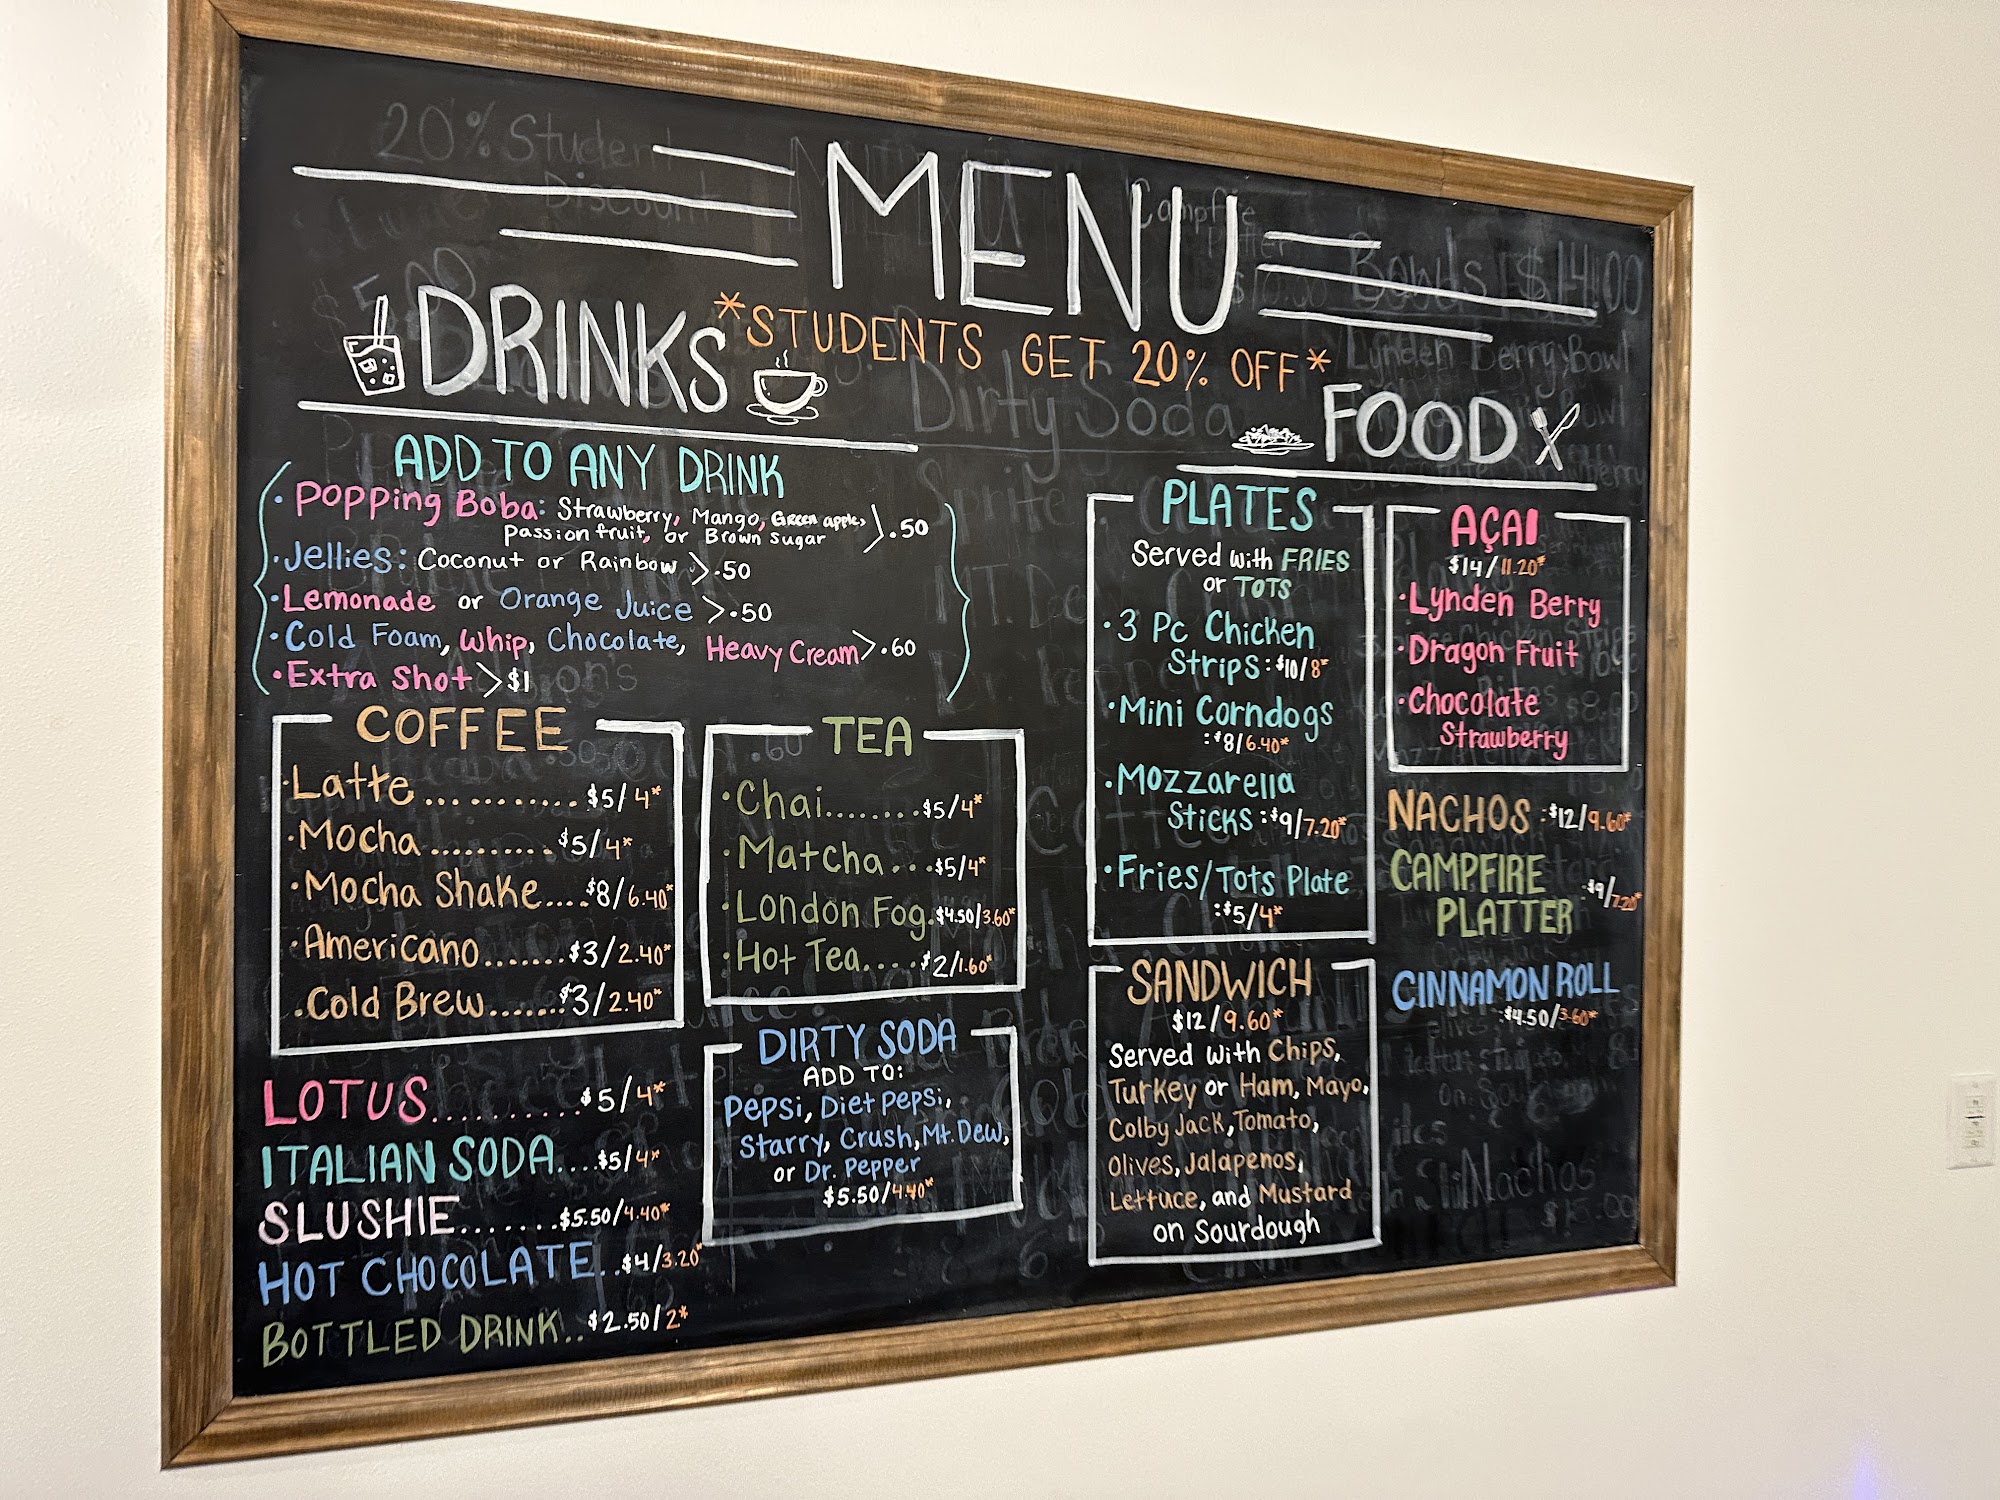 MENU
*STUDENTS GET 20% OFF*
DRINKS
ADD TO ANY DRINK
• Popping Boba: Strawberry, Mango, Green apple, > .50
Passion fruit, or Brown sugar
• Jellies: Coconut or Rainbow > .50
• Lemonade or Orange Juice > .50
• Cold Foam, Whip, Chocolate, Heavy Cream > .60
• Extra Shot > $1
COFFEE
• Latte ............ $5/4*
• Mocha .......... $5/4*
• Mocha Shake.... $8/6.40*
• Americano....... $3/2.40*
• Cold Brew....... $3/2.40*
LOTUS.......... $5/4*
ITALIAN SODA.... $5/4*
SLUSHIE....... $5.50/4.40*
HOT CHOCOLATE.. $4/3.20*
BOTTLED DRINK.. $2.50/2*
TEA
• Chai........ $5/4*
• Matcha... $5/4*
• London Fog. $4.50/3.60*
• Hot Tea.... $2/1.60*
DIRTY SODA
ADD TO:
Pepsi, Diet Pepsi,
Starry, Crush, Mt. Dew,
or Dr. Pepper
$5.50/4.40*
FOOD
PLATES
Served with FRIES
or TOTS
• 3 Pc Chicken
Strips: $10/8*
• Mini Corndogs
: $8/6.40*
• Mozzarella
Sticks: $9/7.20*
• Fries/Tots Plate
: $5/4*
SANDWICH
$12/9.60*
Served with Chips,
Turkey or Ham, Mayo,
Colby Jack, Tomato,
Olives, Jalapenos,
Lettuce, and Mustard
on Sourdough
AÇAI
$14/11.20*
• Lynden Berry
• Dragon Fruit
• Chocolate
Strawberry
NACHOS : $12/9.60*
CAMPFIRE
PLATTER : $9/7.20*
CINNAMON ROLL
: $4.50/3.60*
20% Student
Discount
$5.00
Dirty Soda
Campfire
Platter
$10.00
Bowls $14.00
Lynden Berry Bowl
Nachos